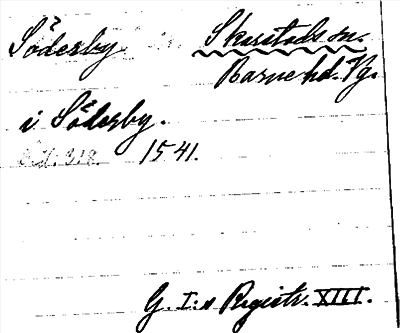 Söderby Skarstads sn.
Barne hd. Vg.
i Söderby.
318. 1541.
G. I:s Registr. XIII.